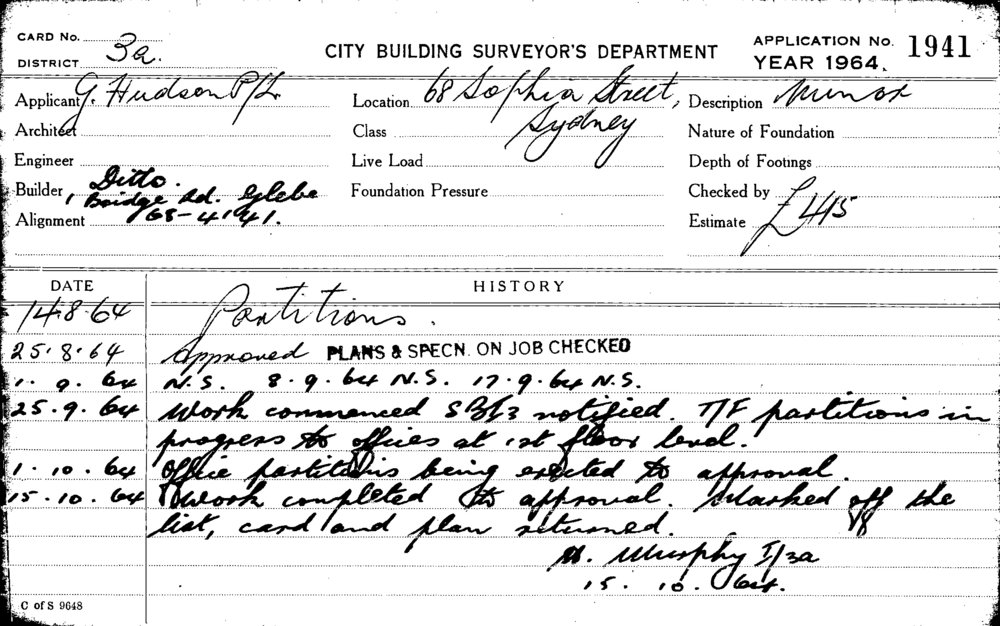 CARD No. 3a.
DISTRICT
CITY BUILDING SURVEYOR'S DEPARTMENT
APPLICATION No. 1941
YEAR 1964.
Applicant G. Hudson P/L
Location 68 Sophia Street,
Sydney
Description Minor
Architect
Class
Nature of Foundation
Engineer
Live Load
Depth of Footings
Builder Ditto.
1 Bridge Rd. Glebe
Foundation Pressure
Checked by
Alignment 68-4141.
Estimate £415
DATE HISTORY
14.8.64 Partitions.
25.8.64 Approved PLANS & SPECN. ON JOB CHECKED
1. 9. 64 N.S. 8.9.64 N.S. 17.9.64 N.S.
25.9.64 Work commenced notified. T/F partitions in
progress to offices at 1st floor level.
1.10.64 Office partitions being erected to approval.
15.10.64 Work completed to approval. Marked off the
list, card and plan returned.
Murphy I/3a
15. 10. 64.
C of S 9648